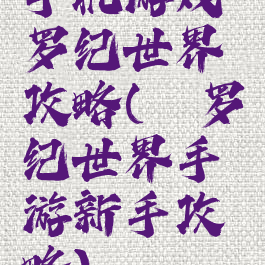 手机游戏
罗纪世界
攻略( 罗
纪世界手
游新手攻
略)